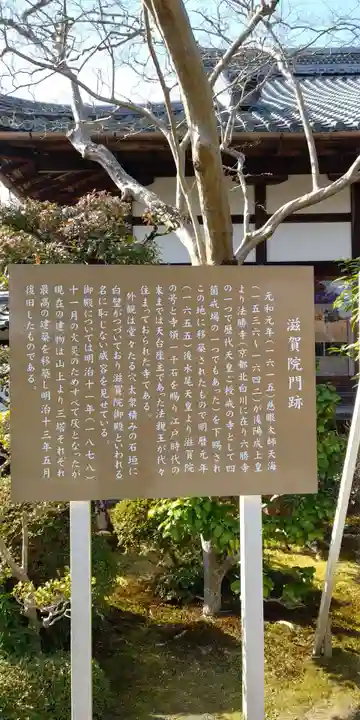 滋賀院門跡
元和元年(一六一五)慈眼大師天海
(一五三六-一六四二)が後陽成上皇
より法勝寺(京都北白川に在り六勝寺
の一つで歴代天皇ご授戒の寺として四
箇戒場の一つでもあった)を下賜され
この地に移築されたもので明暦元年
(一六五五)後水尾天皇より滋賀院
の号と寺領一千石を賜り江戸時代の
末までは天台座主であった法親王が代々
住まっておられた寺である。
外観は堂々たる穴太衆積みの石垣に
白壁がつづいており滋賀院御殿といわれる
名に恥じない威容を見せている。
御殿については明治十一年(一八七八)
十一月の火災のためすべて灰となったが
現在の建物は山上より三塔それぞれ
最高の建築を移築し明治十三年五月
復旧したものである。